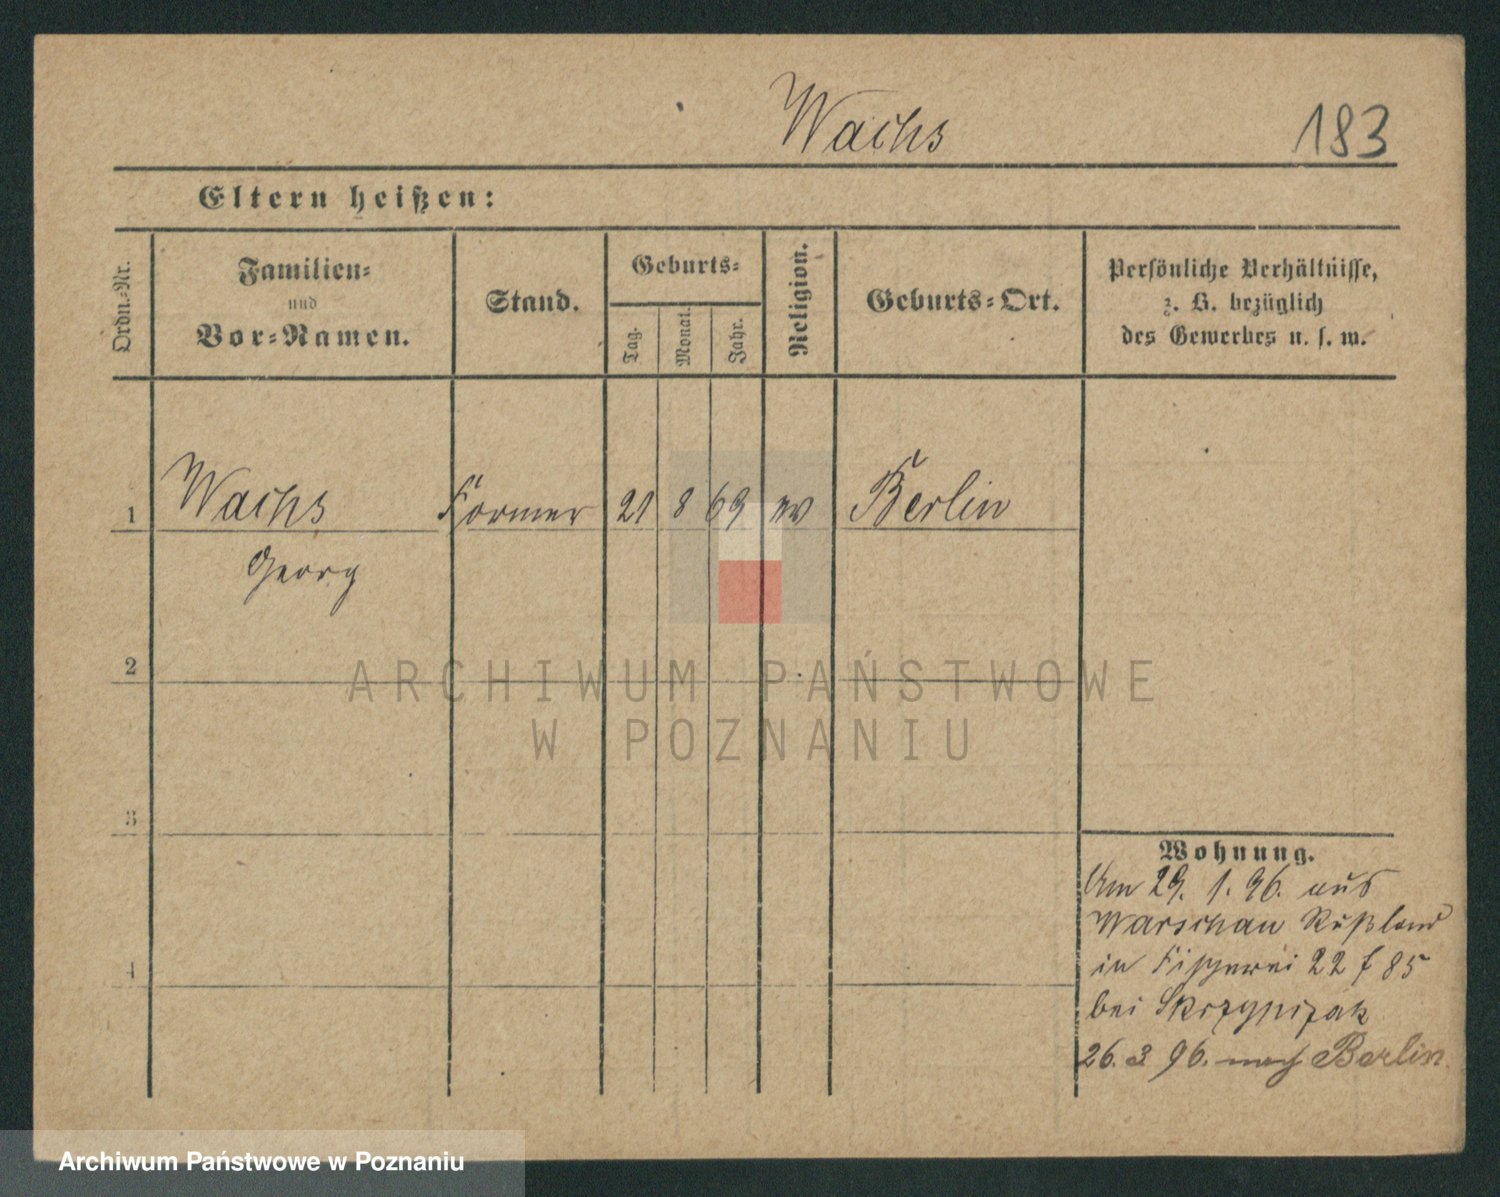 Wachs
183
Eltern heißen:
Ordn.-Nr.
Familien-
und
Vor-Namen.
Stand.
Geburts-
Tag.
Monat.
Jahr.
Religion.
Geburts-Ort.
Persönliche Verhältnisse,
z. B. bezüglich
des Gewerbes u. s. w.
1 Wachs Former 21 8 69 ev Berlin
Georg
2
3
4
Wohnung.
Am 29. 1. 96. aus
Warschau Rußland
in Fischerei 22 f 85
bei Skrzypczak
26. 3 96. nach Berlin
ARCHIWUM PAŃSTWOWE
W POZNANIU
Archiwum Państwowe w Poznaniu